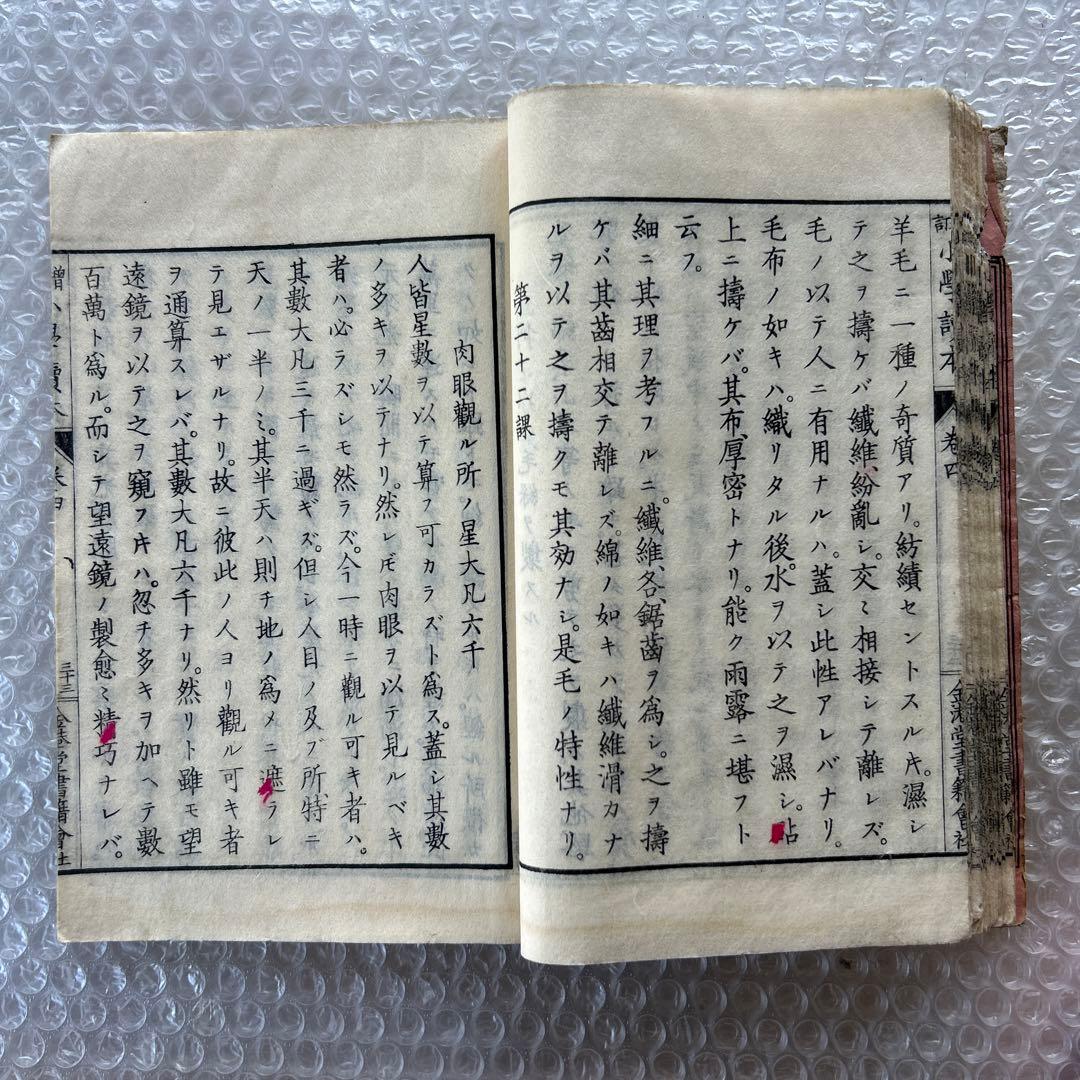 羊毛ニ一種ノ奇質アリ。紡績セントスルキ。濕シ
テ之ヲ擣ケバ纖維紛亂シ。交ミ相接シテ離レズ。
毛ノ以テ人ニ有用ナルハ。蓋シ此性アレバナリ。
毛布ノ如キハ。織リタル後。水ヲ以テ之ヲ濕シ。砧
上ニ擣ケバ。其布、厚密トナリ。能ク雨露ニ堪フト
云フ。
細ニ其理ヲ考フルニ。纖維、各、鋸齒ヲ爲シ。之ヲ擣
ケバ其齒相交テ離レズ。綿ノ如キハ纖維滑カナ
ルヲ以テ之ヲ擣クモ其効ナシ。是毛ノ特性ナリ。
第二十二課
肉眼觀ル所ノ星大凡六千
人皆星數ヲ以テ算フ可カラズト爲ス。蓋シ其數
ノ多キヲ以テナリ。然レ𪜈肉眼ヲ以テ見ルベキ
者ハ。必ラズシモ然ラズ。今一時ニ觀ル可キ者ハ。
其數大凡三千ニ過ギズ。但シ人目ノ及ブ所、特ニ
天ノ一半ノミ。其半天ハ則チ地ノ爲メニ遮ラレ
テ見エザルナリ。故ニ彼此ノ人ヨリ觀ル可キ者
ヲ通算スレバ。其數大凡六千ナリ。然リト雖モ望
遠鏡ヲ以テ之ヲ窺フ𪜈ハ。忽チ多キヲ加ヘテ數
百萬ト爲ル。而シテ望遠鏡ノ製愈ミ精巧ナレバ。
小學讀本
卷四
金港堂書籍會社
卷四
三十三
金港堂書籍會社